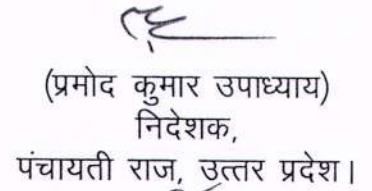 (प्रमोद कुमार उपाध्याय)
निदेशक,
पंचायती राज, उत्तर प्रदेश।